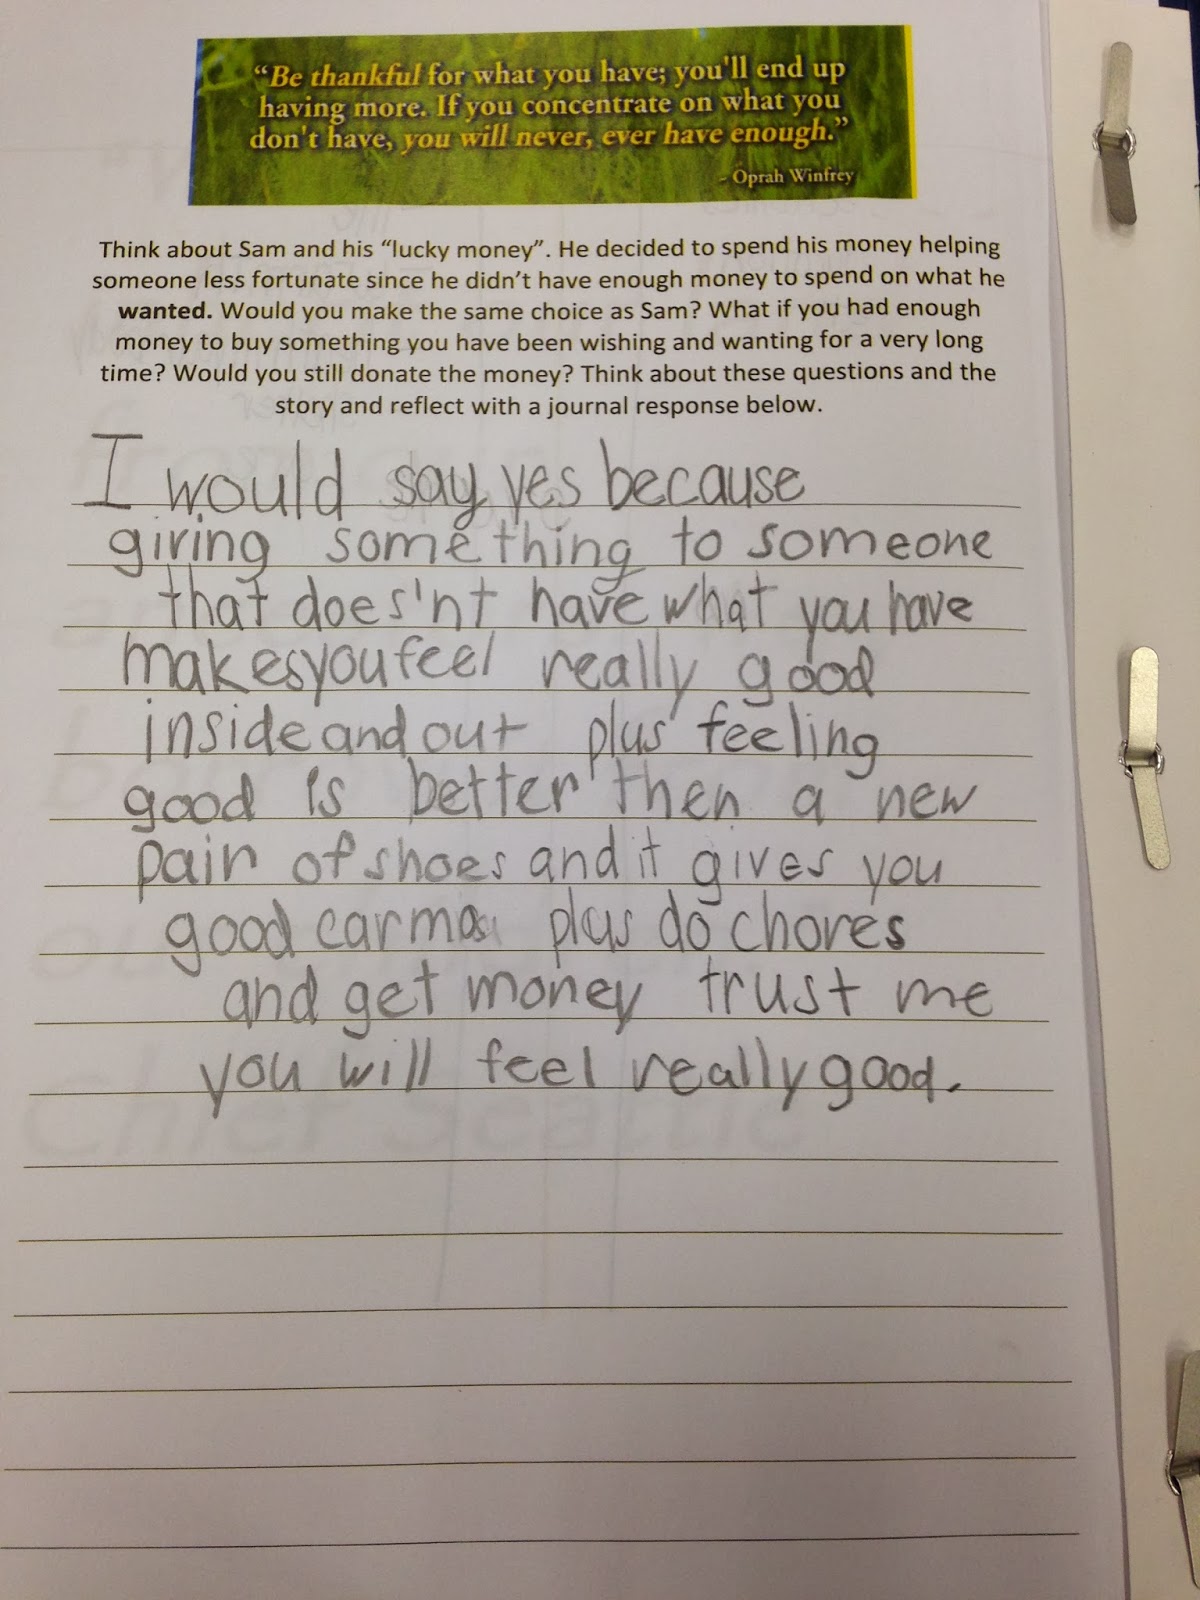 “Be thankful for what you have; you'll end up
having more. If you concentrate on what you
don't have, you will never, ever have enough.”
- Oprah Winfrey
Think about Sam and his “lucky money”. He decided to spend his money helping
someone less fortunate since he didn’t have enough money to spend on what he
wanted. Would you make the same choice as Sam? What if you had enough
money to buy something you have been wishing and wanting for a very long
time? Would you still donate the money? Think about these questions and the
story and reflect with a journal response below.
I would say yes because
giving something to someone
that does'nt have what you have
makes you feel really good
inside and out plus feeling
good is better then a new
pair of shoes and it gives you
good carma plus do chores
and get money trust me
you will feel really good.
Chief Seattle